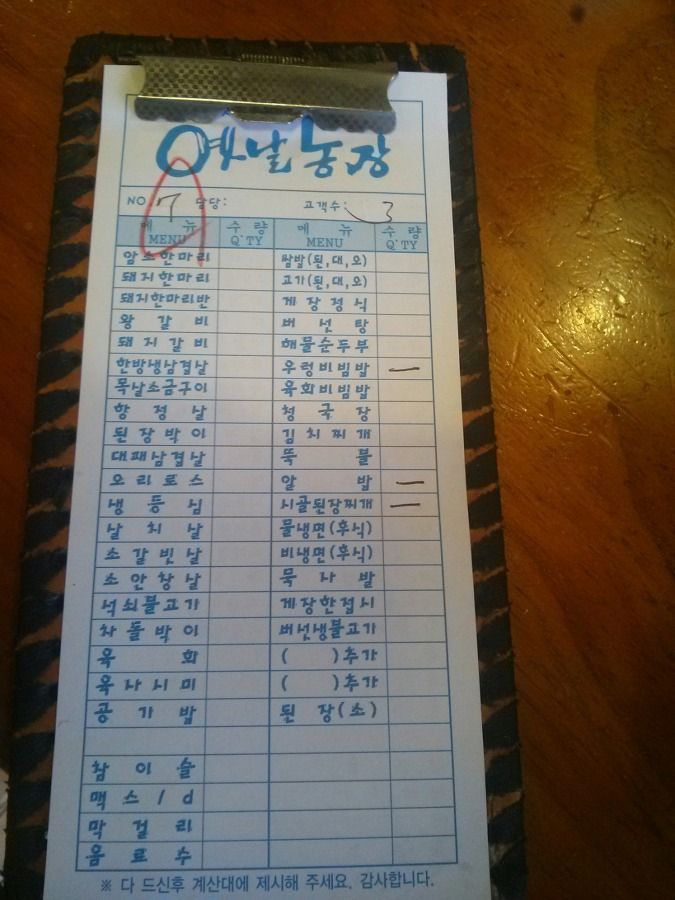 옛날농장
NO 7 담당: 고객수: 3
메 뉴 수 량 메 뉴 수 량
MENU Q'TY MENU Q'TY
암소한마리 쌈밥(된,대,오)
돼지한마리 고기(된,대,오)
돼지한마리반 게장정식
왕 갈 비 버 섯 탕
돼 지 갈 비 해물순두부
한방생삼겹살 우렁비빔밥 一
목살소금구이 육회비빔밥
항 정 살 청 국 장
된 장 박 이 김 치 찌 개
대패삼겹살 뚝 불
오 리 로 스 알 밥 一
생 등 심 시골된장찌개 一
살 치 살 물냉면(후식)
소 갈 빗 살 비냉면(후식)
소 안 창 살 묵 사 발
석쇠불고기 게장한접시
차 돌 박 이 버섯생불고기
육 회 ( )추가
육 사 시 미 ( )추가
공 기 밥 된 장(소)
참 이 슬
맥 스 / d
막 걸 리
음 료 수
※ 다 드신후 계산대에 제시해 주세요. 감사합니다.